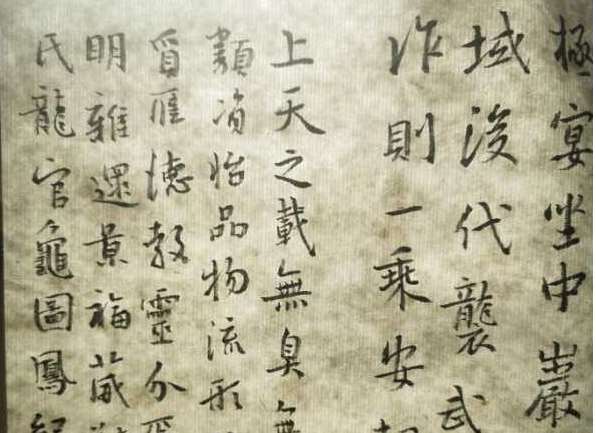 極宴坐中巖
域後代襲武
作則一乘安
上天之載無臭無
類冥怡品物流形
雁德教靈分
明雜還景福葳
氏龍官龜圖鳳紀